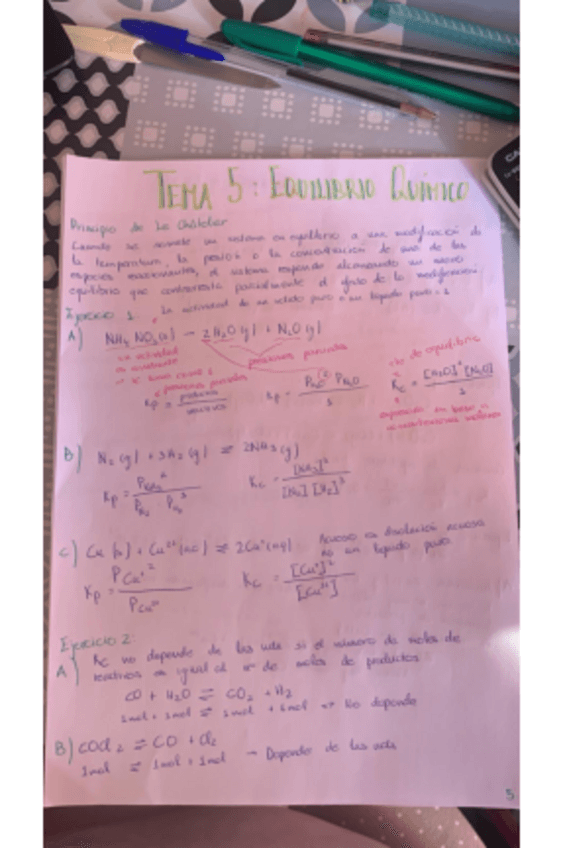 TEMA 5: EQUILIBRIO QUÍMICO
Principio de Le Châtelier
Cuando se somete un sistema en equilibrio a una modificación de
la temperatura, la presión o la concentración de una de las
especies reaccionantes, el sistema responde alcanzando un nuevo
equilibrio que contrarresta parcialmente el efecto de la modificación
Ejercicio 1: La actividad de un sólido puro o un líquido puro = 1
A) NH4 NO3(s) → 2H2O(g) + N2O(g)
presiones parciales
su actividad
es constante
presiones parciales
Kp = productos / reactivos
Kp = P H2O ² P N2O / 1
cte de equilibrio
Kc = [H2O]² [N2O] / 1
B) N2(g) + 3H2(g) ⇌ 2NH3(g)
Kp = P NH3 ² / P N2 · P H2 ³
Kc = [NH3]² / [N2] [H2]³
C) Cu(s) + Cu²⁺(ac) ⇌ 2Cu⁺(aq) Acuoso es disolución acuosa
no un líquido puro
Kp = P Cu⁺ ² / P Cu²⁺
Kc = [Cu⁺]² / [Cu²⁺]
Ejercicio 2:
A) Kc no depende de las uds si el número de moles de
reactivos es igual al nº de moles de productos
CO + H2O ⇌ CO2 + H2
1mol + 1mol ⇌ 1mol + 1mol → No depende
B) COCl2 ⇌ CO + Cl2
1mol ⇌ 1mol + 1mol → Depende de las uds
5